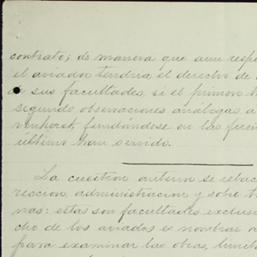 contrato; de manera que aun respe
el aviador tendria el derecho de
sus facultades, si el primero
segundo observaciones análogas a
fundándose en las
ultimo han servido.
La cuestion
reccion, administracion y sobre
nas: estas son facultades exclusi
cho de los aviados es nombrar
para examinar las obras,